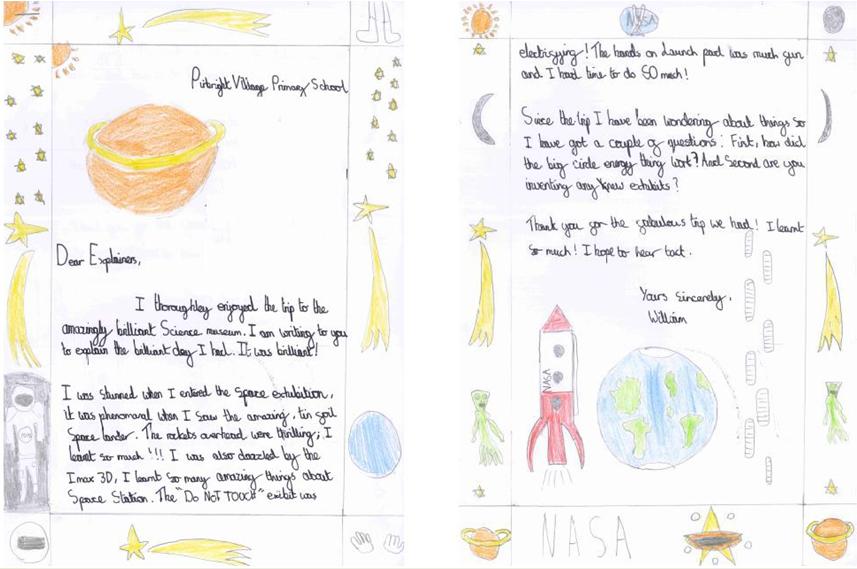 Pirbright Village Primary School
Dear Explainers,
I thoroughley enjoyed the trip to the
amazingly brilliant Science museum. I am writing to you
to explain the brilliant day I had. It was brilliant!
I was stunned when I entered the Space exhibition,
it was phenomanal when I saw the amazing, tin foil
Space lander. The rockets overhead were thrilling; I
learnt so much !!! I was also dazzled by the
Imax 3D, I learnt so many amazing things about
Space Station. The "Do NOT TOUCH" exibit was
NASA
electrifying! The hands on Launch pad was much fun
and I had time to do SO much!
Since the trip I have been wondering about things so
I have got a couple of questions: First, how did
the big circle energy thing work? And Second are you
inventing any knew exhibits?
Thank you for the fabulous trip we had! I learnt
so much! I hope to hear back.
Yours Sincerely,
William
NASA
NASA